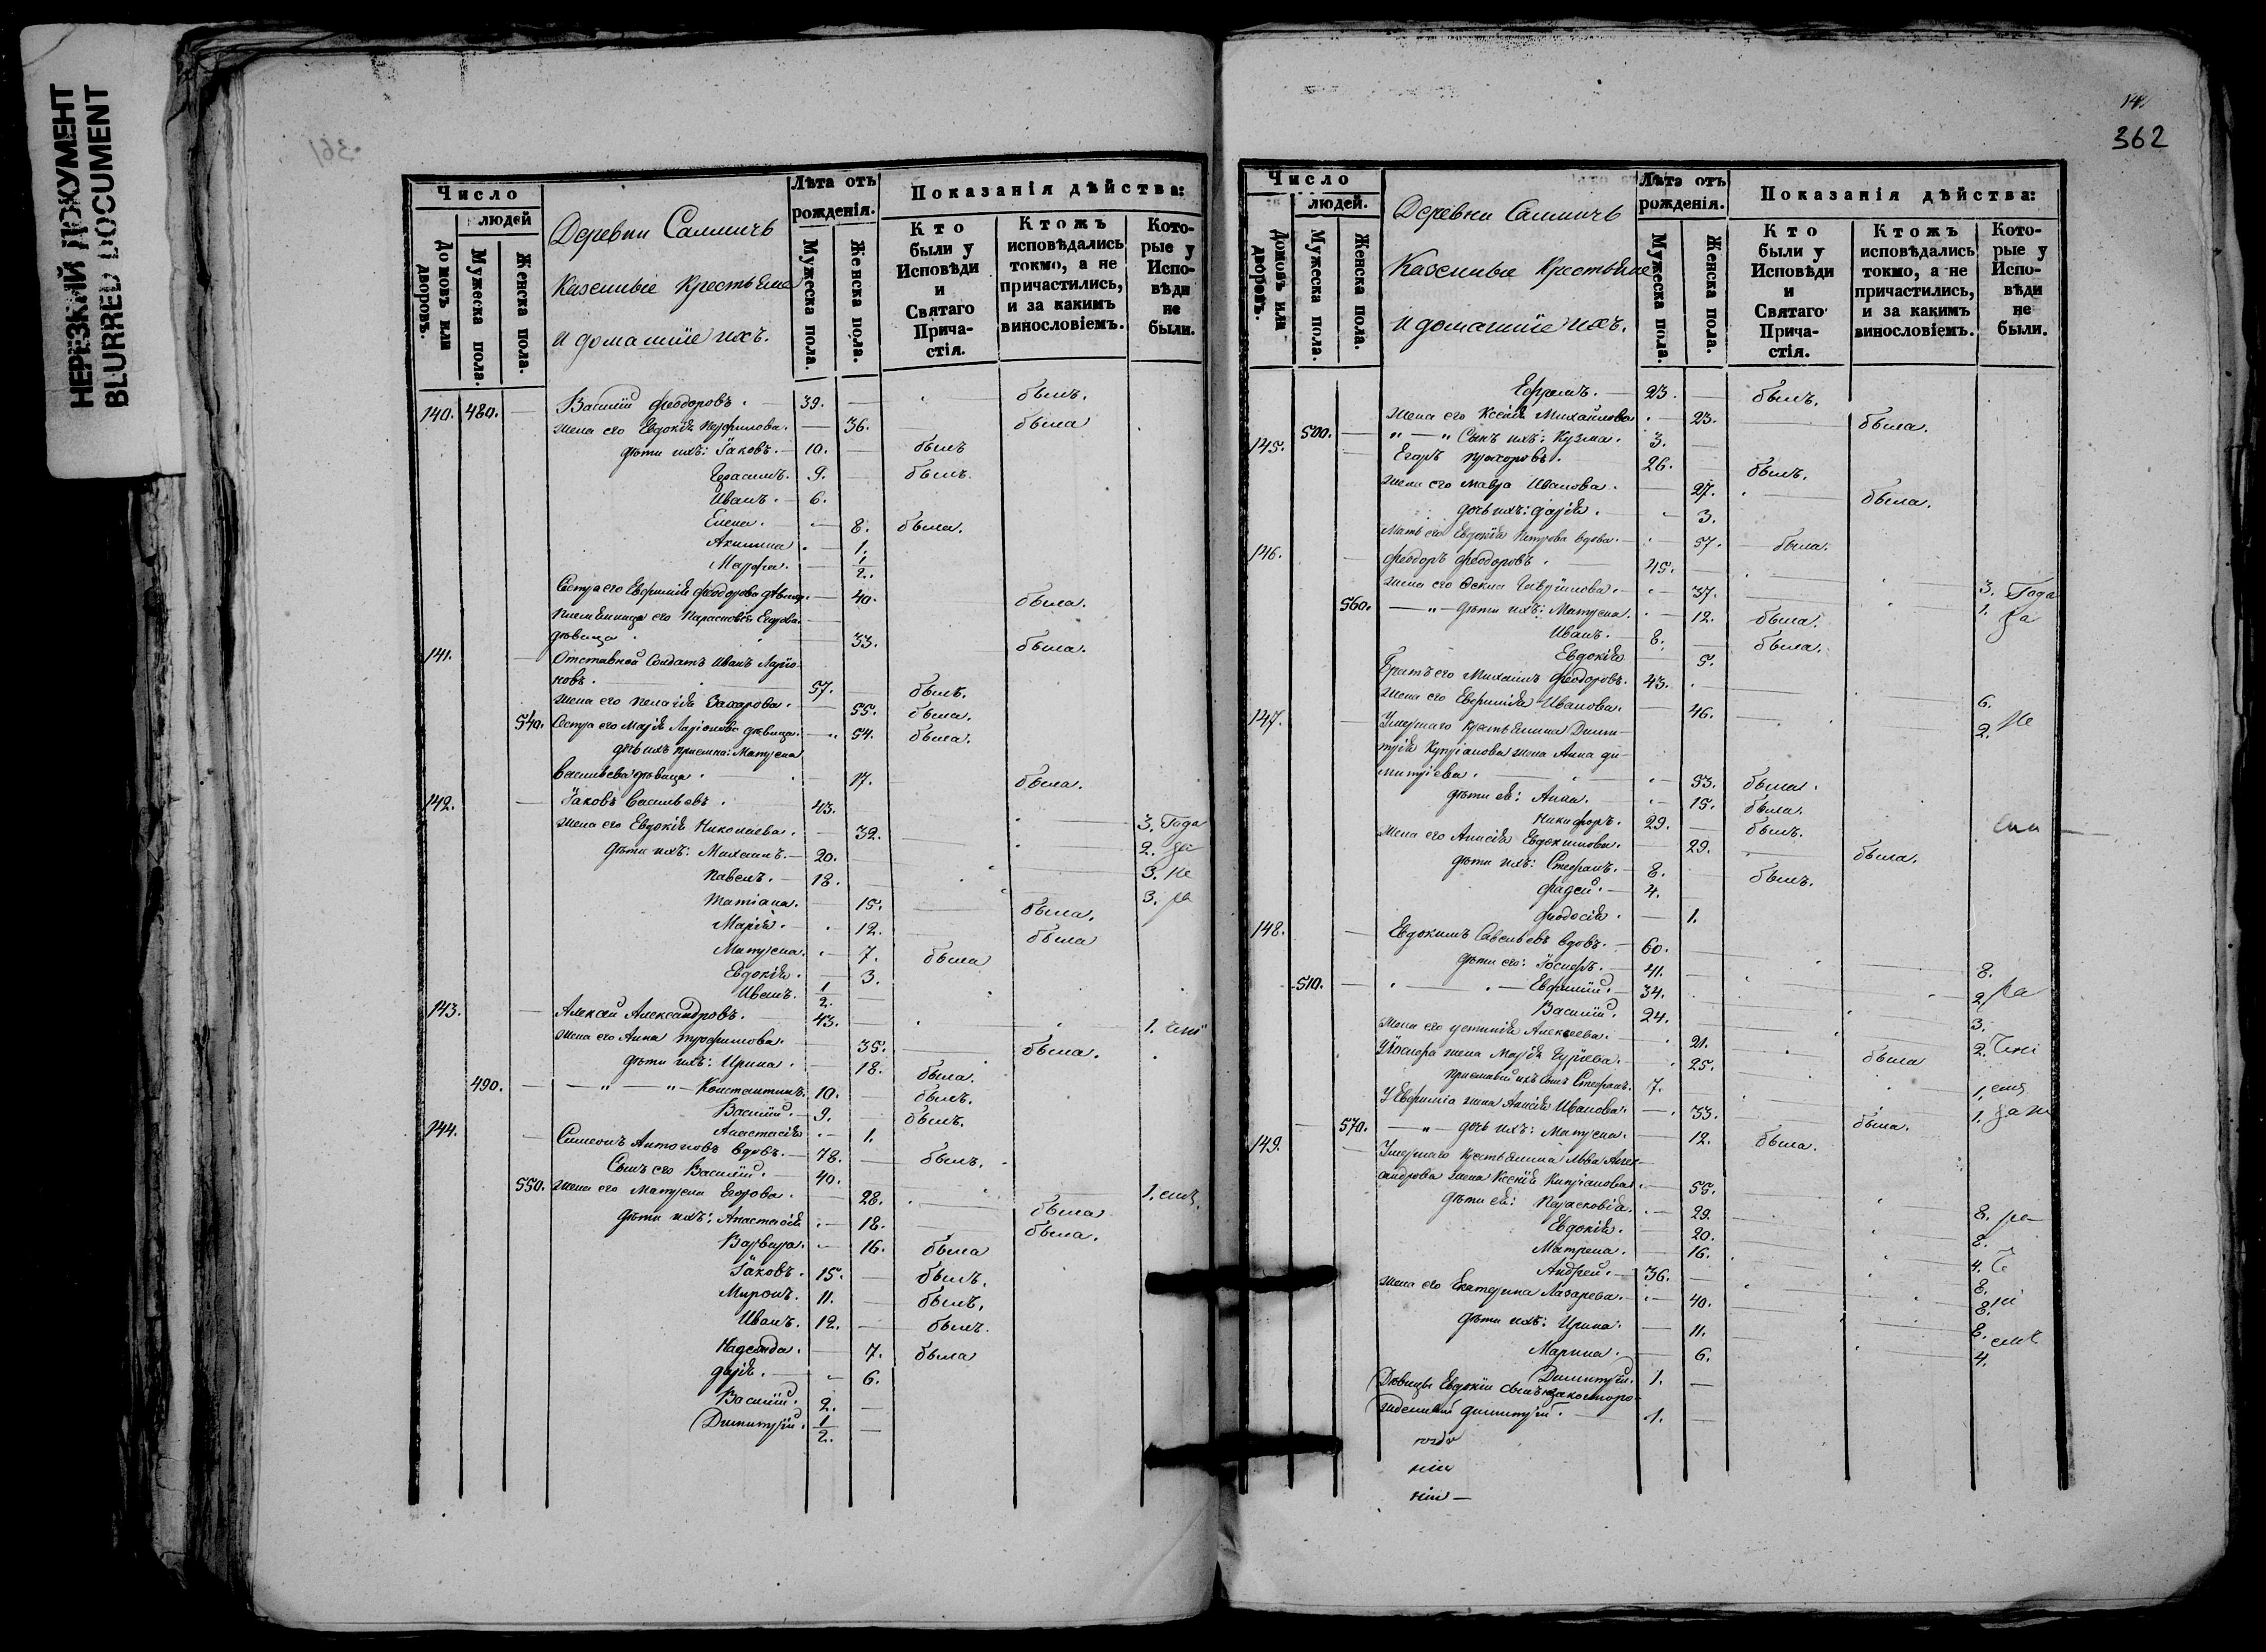 НЕРЕЗКИЙ ДОКУМЕНТ
BLURRED DOCUMENT
Число
людей
Домовъ или дворовъ.
Мужеска пола.
Женска пола.
Деревни Салминъ
Казенные Крестьяне
и домашніе ихъ.
Лѣта отъ рожденія.
Мужеска пола.
Женска пола.
Показанія дѣйства:
Кто были у Исповѣди и Святаго Причастія.
Ктожъ исповѣдались токмо, а не причастились, и за какимъ винословіемъ.
Которые у Исповѣди не были.
140. 480. Василій Феодоровъ. 39. былъ.
жена его Евдокія Перфилова. 36. была
дѣти ихъ: Іаковъ. 10. былъ
Герасимъ. 9. былъ.
Иванъ. 6.
Елена. 8. была.
Акилина 1.
Марфа. 1/2.
Сестра его Евфимія Феодорова дѣвица. 40. была.
племянница его Парасковія Егорова
дѣвица 33. была.
141. Отставной Солдатъ Иванъ Ларіо-
новъ. 57. былъ.
жена его Пелагія Захарова. 55. была.
540. Сестра его Марія Ларіонова дѣвица. 54. была.
дочь ихъ приемна: Матрена
Васильева дѣвица. 17. была.
142. Іаковъ Васильевъ. 43. 3. Года
жена его Евдокія Николаева. 32. 2.
дѣти ихъ: Михаилъ. 20. 3. не
Павелъ. 18. 3. ра
Татіана. 15. была.
Марія. 12. была
Матрена. 7. была
Евдокія. 3.
Иванъ. 1/2.
143. Алексѣй Александровъ. 43. 1.
жена его Анна Трофимова. 35. была.
дѣти ихъ: Ирина. 18. была.
490. — " — " — Константинъ. 10. былъ.
Василій. 9. былъ.
Анастасія 1.
144. Симеонъ Антоновъ вдовъ. 78. былъ.
Сынъ его Василій. 40. 1.
550. жена его Матрена Егорова. 28. была
дѣти ихъ: Анастасія 18. была.
Варвара. 16. была
Іаковъ. 15. былъ.
Миронъ. 11. былъ.
Иванъ. 12. былъ.
Надежда. 7. была
Дарія. 6.
Василій. 2.
Димитрій. 1/2.
14.
362
Число
людей.
Домовъ или дворовъ.
Мужеска пола.
Женска пола.
Деревни Салминъ
Казенные Крестьяне
и домашніе ихъ.
Лѣта отъ рожденія.
Мужеска пола.
Женска пола.
Показанія дѣйства:
Кто были у Исповѣди и Святаго Причастія.
Ктожъ исповѣдались токмо, а не причастились, и за какимъ винословіемъ.
Которые у Исповѣди не были.
Ефремъ. 23. былъ.
жена его Ксенія Михайлова 23. была.
500. " — " Сынъ ихъ: Кузма. 3.
145. Егоръ Прохоровъ. 26. былъ.
жена его Мавра Иванова. 27. была.
дочь ихъ: Дарія. 3.
Мать его Евдокія Петрова вдова. 57. была.
146. Феодоръ Феодоровъ. 45. 3. Года
жена его Фекла Гаврилова. 37. 1. ра
560. — " — дѣти ихъ: Матрена. 12. была.
Иванъ. 8. была.
Евдокія 5.
Братъ его Михаилъ Феодоровъ. 43. 6.
жена его Евфимія Иванова. 46. 2. не
147. Умершаго крестьянина Дими-
трія Купріанова жена Анна Ди-
митріева. 53. была.
дѣти ея: Анна. 15. была.
Никифоръ. 29. былъ.
жена его Анисія Евдокимова. 29. была.
дѣти ихъ: Стефанъ. 8. былъ.
Фадей. 4.
Феодосія. 1.
148. Евдокимъ Савельевъ вдовъ. 60. 8.
дѣти его: Іосифъ. 41. 2. ра
510. Евфимій. 34. 3.
Василій. 24. 2.
жена его Устинія Алексѣева. 21. была
У Іосифа жена Марія Гурьева. 25. 1.
Приемный ихъ сынъ Стефанъ. 7. 1.
У Евфимія жена Анисія Иванова. 33. была.
570. — " — дочь ихъ: Матрена. 12. была.
149. Умершаго крестьянина Льва Алек-
сандрова жена Ксенія Кипріанова. 55. 8.
дѣти ея: Парасковія. 29. 8.
Евдокія. 20. 4.
Матрена. 16. 8.
Андрей. 36. 8.
жена его Екатерина Лазарева. 40. 8.
дѣти ихъ: Ирина. 11. 4.
Марина. 6.
Димитрій. 1.
Дѣвицы Евдокіи сынъ незаконоро-
жденный Димитрій. 1.